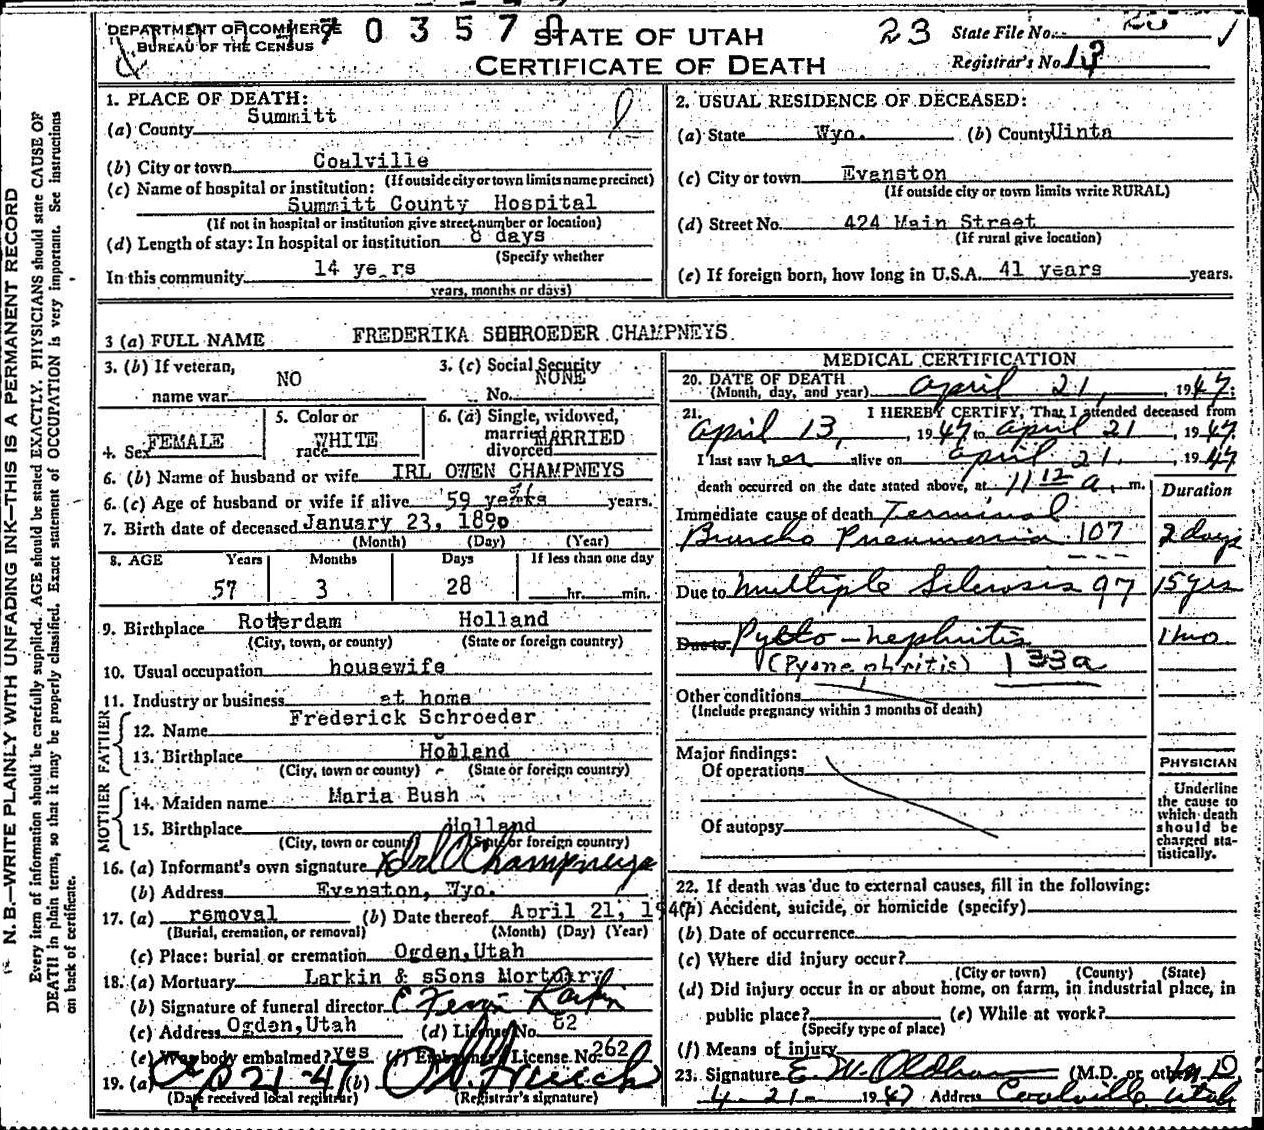 DEPARTMENT OF COMMERCE
BUREAU OF THE CENSUS
7 0 3 5 7
STATE OF UTAH
CERTIFICATE OF DEATH
23
State File No.
Registrar's No.
1. PLACE OF DEATH:
(a) County Summitt
(b) City or town Coalville
(If outside city or town limits name precinct)
(c) Name of hospital or institution:
Summitt County Hospital
(If not in hospital or institution give street number or location)
(d) Length of stay: In hospital or institution 8 days
(Specify whether
In this community 14 years
years, months or days)
2. USUAL RESIDENCE OF DECEASED:
(a) State Wyo. (b) County Uinta
(c) City or town Evanston
(If outside city or town limits write RURAL)
(d) Street No. 424 Main Street
(If rural give location)
(e) If foreign born, how long in U.S.A. 41 years years.
3 (a) FULL NAME FREDERIKA SCHROEDER CHAMPNEYS.
3. (b) If veteran, name war NO
3. (c) Social Security No. NONE
4. Sex FEMALE
5. Color or race WHITE
6. (a) Single, widowed, married, divorced MARRIED
6. (b) Name of husband or wife IRL OWEN CHAMPNEYS
6. (c) Age of husband or wife if alive 59 years.
7. Birth date of deceased January 23, 1890
(Month) (Day) (Year)
8. AGE Years Months Days If less than one day
57 3 28 hr. min.
9. Birthplace Rotterdam Holland
(City, town, or county) (State or foreign country)
10. Usual occupation housewife
11. Industry or business at home
FATHER
12. Name Frederick Schroeder
13. Birthplace Holland
(City, town or county) (State or foreign country)
MOTHER
14. Maiden name Maria Bush
15. Birthplace Holland
(City, town or county) (State or foreign country)
16. (a) Informant's own signature Irl O Champneys
(b) Address Evanston, Wyo.
17. (a) removal (b) Date thereof April 21, 194
(Burial, cremation, or removal) (Month) (Day) (Year)
(c) Place: burial or cremation Ogden, Utah
18. (a) Mortuary Larkin & sSons Mortuary
(b) Signature of funeral director Larkin
(c) Address Ogden, Utah (d) License No. 62
(e) Was body embalmed? yes (f) Embalmer's License No. 262
19. (a) 21-47 (b)
(Date received local registrar) (Registrar's signature)
MEDICAL CERTIFICATION
20. DATE OF DEATH
(Month, day, and year) April 21, 1947.
21. I HEREBY CERTIFY, That I attended deceased from
April 13, 1947 to April 21 1947
I last saw her alive on April 21, 1947
death occurred on the date stated above, at 11 12 a. m.
Duration
Immediate cause of death Terminal
Broncho Pneumonia 107 2 days
Due to Multiple Sclerosis 97 15 yrs
Due to Pyelo-nephritis 1 mo
(Pyonephritis) 133a
Other conditions
(Include pregnancy within 3 months of death)
Major findings:
Of operations
Of autopsy
PHYSICIAN
Underline the cause to which death should be charged statistically.
22. If death was due to external causes, fill in the following:
(a) Accident, suicide, or homicide (specify)
(b) Date of occurrence
(c) Where did injury occur?
(City or town) (County) (State)
(d) Did injury occur in or about home, on farm, in industrial place, in
public place? (e) While at work?
(Specify type of place)
(f) Means of injury
23. Signature E. W. Oldham (M.D. or other) M D
4-21- 1947 Address Coalville, Utah
N. B.—WRITE PLAINLY WITH UNFADING INK—THIS IS A PERMANENT RECORD
Every item of information should be carefully supplied. AGE should be stated EXACTLY. PHYSICIANS should state CAUSE OF
DEATH in plain terms, so that it may be properly classified. Exact statement of OCCUPATION is very important. See instructions
on back of certificate.